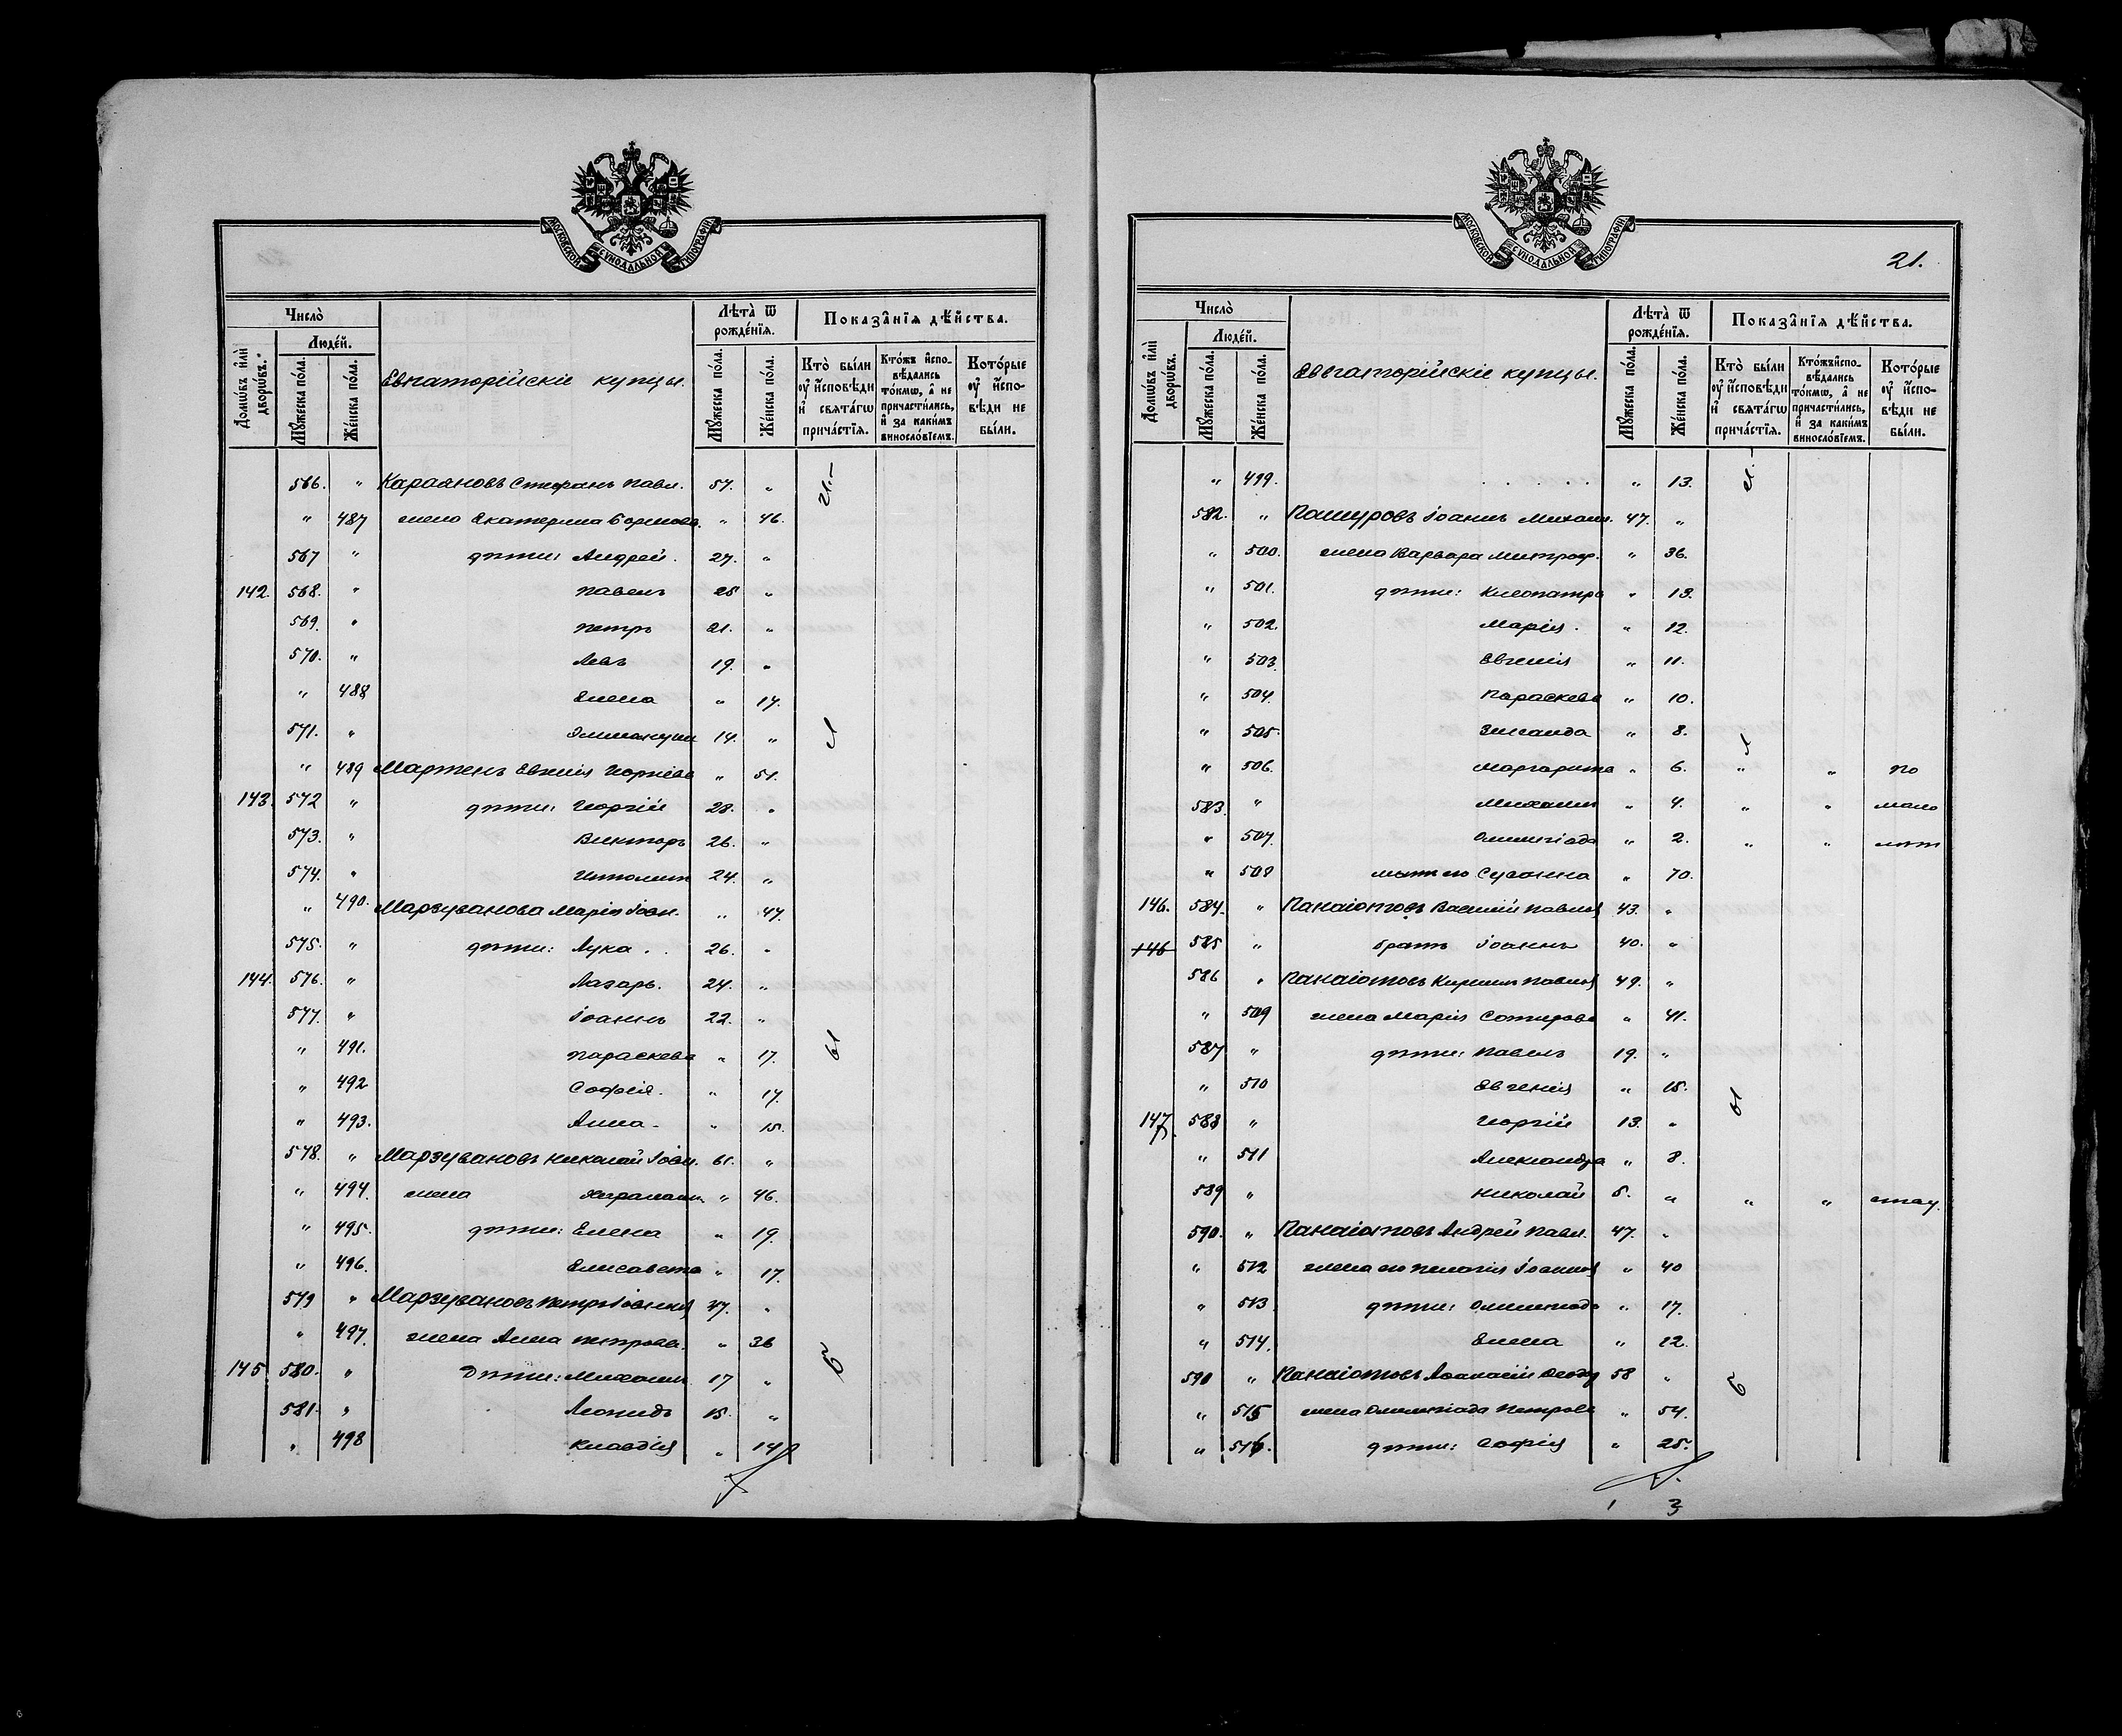 МОСКОВСКОЙ СУНОДАЛЬНОЙ ТИПОГРАФІИ.
Число̀
Людéй.
Домѡ́въ и҆лѝ дворѡ́въ.
Мꙋ́жеска по́ла.
Же́нска по́ла.
Евпаторійскіе купцы.
Лѣта̀ ѿ рожде́нїѧ.
Мꙋ́жеска по́ла.
Же́нска по́ла.
Показа̑нїѧ дѣ́йства.
Кто̀ бы́ли оу҆ и҆сповѣ́ди и҆ свѧта́гѡ прича́стїѧ.
Кто́жъ и҆спо-вѣ́дались то́кмѡ, а҆ не причасти́лись, и҆ за каки́мъ винослóвїемъ.
Кото́рые оу҆ и҆спо-вѣ́ди не бы́ли.
566. " Караяновъ Стефанъ Павл. 57. "
" 487 жена Екатерина " 46.
567 " дѣти: Андрей. 27. "
142. 568. " Павелъ 25 "
569. " Петръ 21. "
570. " Левъ 19. "
" 488 Елена " 17.
571. " 14. "
" 489 Евгенія Георгіева " 51.
143. 572 " дѣти: Георгій 28. "
573. " Викторъ 26. "
574. " Ипполитъ 24. "
" 490. Марзуванова Марія Іоан. " 47.
575. " дѣти: Лука . . 26. "
144. 576. " Лазарь. 24. "
577. " Іоаннъ 22. "
" 491. Параскева " 17.
" 492 Софія. " 17.
" 493. Анна " 15.
578. " Марзувановъ Николай Іоан. 61. "
" 494. жена " 46.
" 495. дѣти: Елена " 19.
" 496. Елисавета " 17.
579 " Марзувановъ Петръ 47. "
" 497. жена Анна Петрова. " 36
145 580. " Дѣти: Михаилъ 17 "
581. " Леонидъ 15. "
" 498 Клавдія " 14
МОСКОВСКОЙ СУНОДАЛЬНОЙ ТИПОГРАФІИ.
21.
Число̀
Людéй.
Домѡ́въ и҆лѝ дворѡ́въ.
Мꙋ́жеска по́ла.
Же́нска по́ла.
Евпаторійскіе купцы.
Лѣта̀ ѿ рожде́нїѧ.
Мꙋ́жеска по́ла.
Же́нска по́ла.
Показа̑нїѧ дѣ́йства.
Кто̀ бы́ли оу҆ и҆сповѣ́ди и҆ свѧта́гѡ прича́стїѧ.
Кто́жъ и҆спо-вѣ́дались то́кмѡ, а҆ не причасти́лись, и҆ за каки́мъ винослóвїемъ.
Кото́рые оу҆ и҆спо-вѣ́ди не бы́ли.
" 499. . . . . . " 13.
582. " Пашуровъ Іоаннъ Михаил. 47. "
" 500. жена Варвара Митроф. " 36.
" 501. дѣти: Клеопатра " 13.
" 502. Марія. " 12.
" 503. Евгенія " 11.
" 504. Параскева " 10.
" 505. Зинаида " 8.
" 506. Маргарита " 6. " " по
583. " Михаилъ " 4. " " мало
" 507. Олимпіада " 2. " " лѣт
" 508 мать его Сусанна " 70.
146. 584. " Панаіотовъ Василій Павлов 43. "
146 585 " братъ Іоаннъ 40. "
586 " Панаіотовъ Кириллъ Павлов 49. "
" 509 жена Марія Сотирова " 41.
587 " дѣти: Павелъ 19. "
" 510 Евгенія " 15.
147. 588 " Георгій 13. "
" 511 Александра " 8.
589 " Николай 5. " " "
590. " Панаіотовъ Андрей Павл. 47. "
" 512 жена его Пелагія Іоаннов " 40
" 513 дѣти: Олимпіада " 17.
" 514. Елена " 12.
590 " Панаіотовъ Аѳанасій Ѳеод 58 "
" 515 жена Олимпіада Петрова " 54.
" 516. дѣти: Софія " 25.
1 3